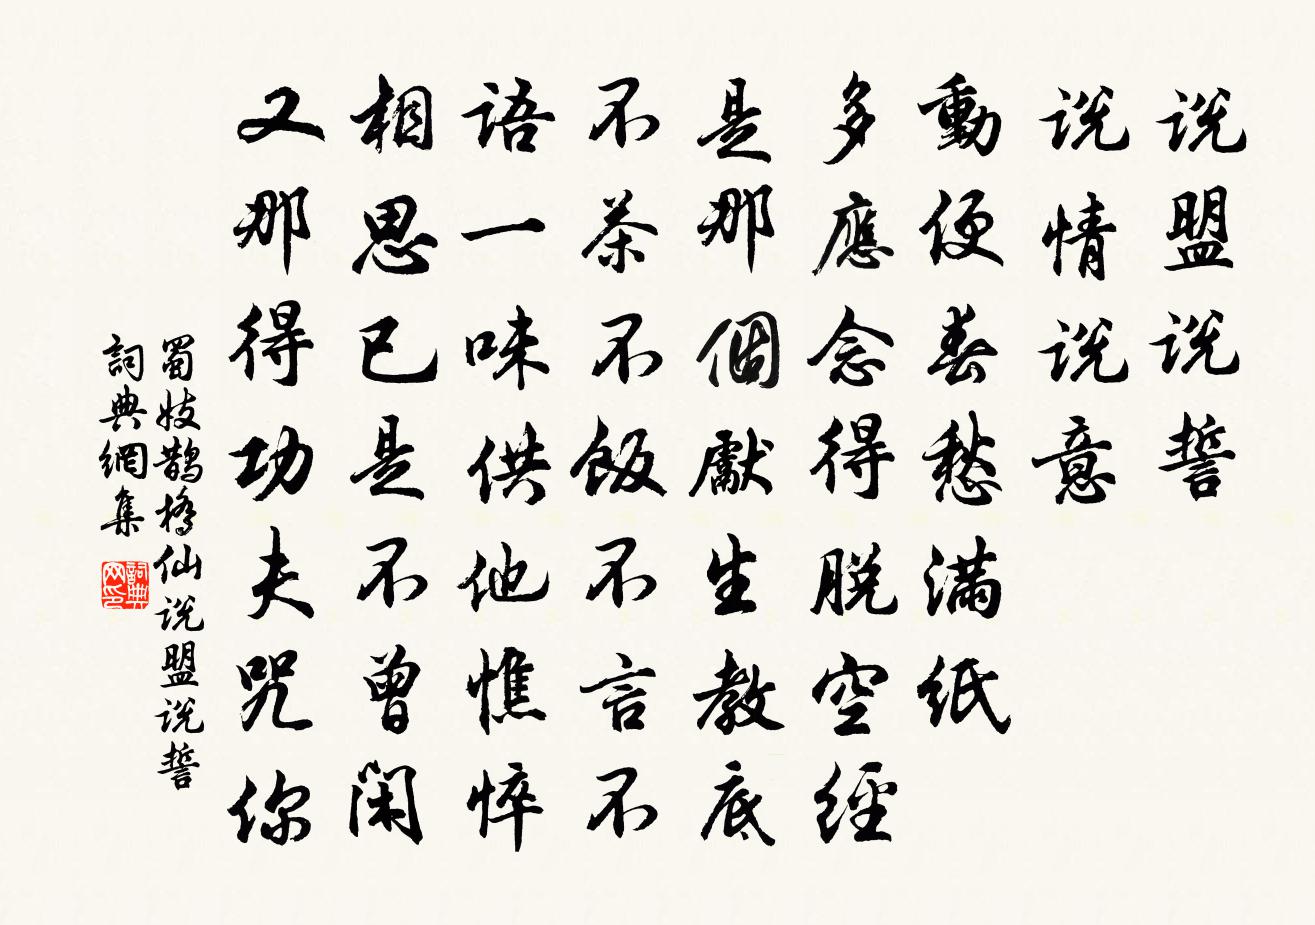 说盟说誓
说情说意
動便春愁滿紙
多應念得脫空經
是那個獻生教底
不茶不飯不言不
語一味供他憔悴
相思已是不曾閑
又那得功夫咒你
蜀妓鵲橋仙 说盟说誓
詞典網集
詞典网印